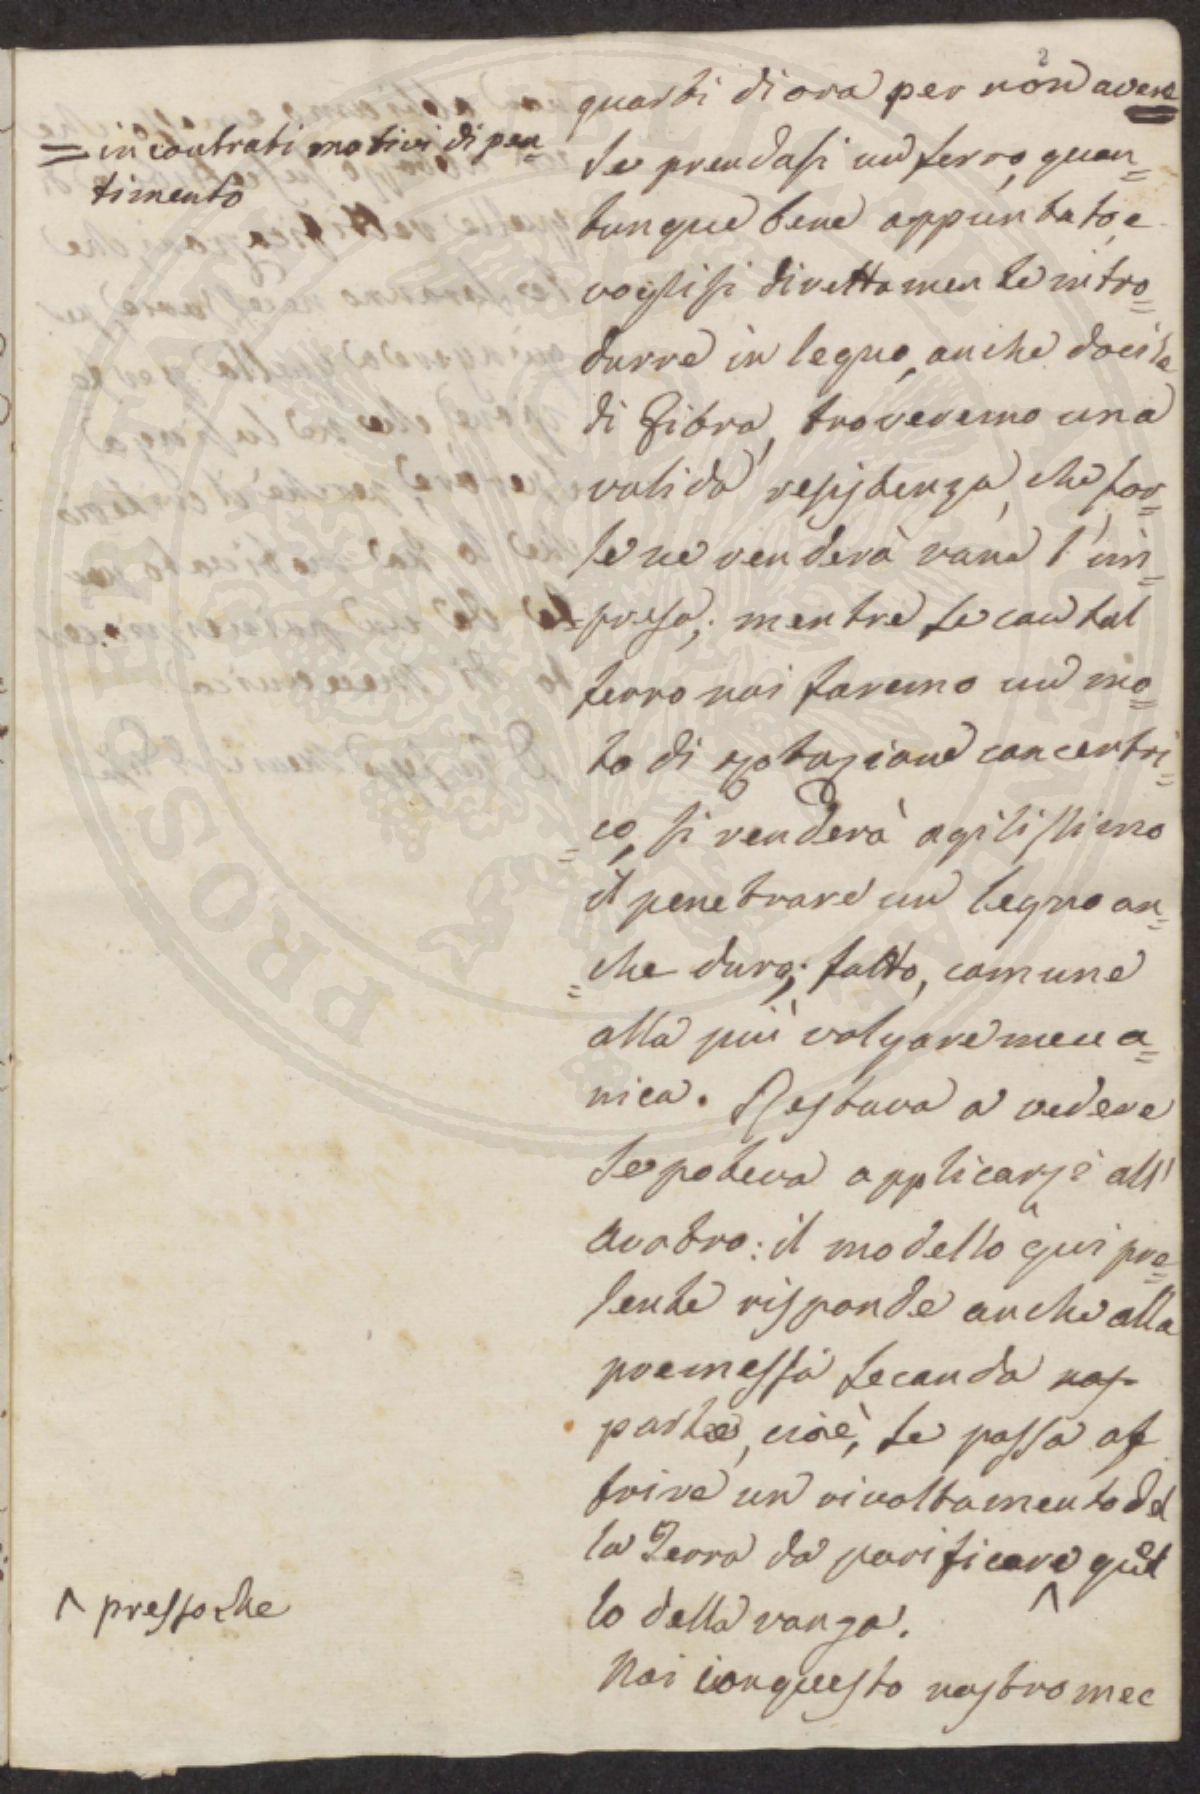 2
quarti di ora per non avere
= incontrati motivi di pen=
timento
Se prendasi un ferro, quan=
tunque bene appuntato, e
voglisi direttamente intro=
durre in legno, anche docile
di fibra, troveremo una
valida resistenza, che for=
se ne renderà vana l'im=
=presa; mentre se con tal
ferro noi faremo un mo=
to di rotazione concentri=
=co, si renderà agilissimo
il penetrare un legno an=
=che duro; fatto, comune
alla più volgare mecca=
nica. Restava a vedere
se poteva applicarsi all'
aratro: il modello qui pre=
sente risponde anche alla
premessa seconda
parte, cioè, se possa of
frire un rivoltamento del
la Terra da parificare quel
^ pressoche
lo della vanga.
Noi con questo nostro mec
PRO